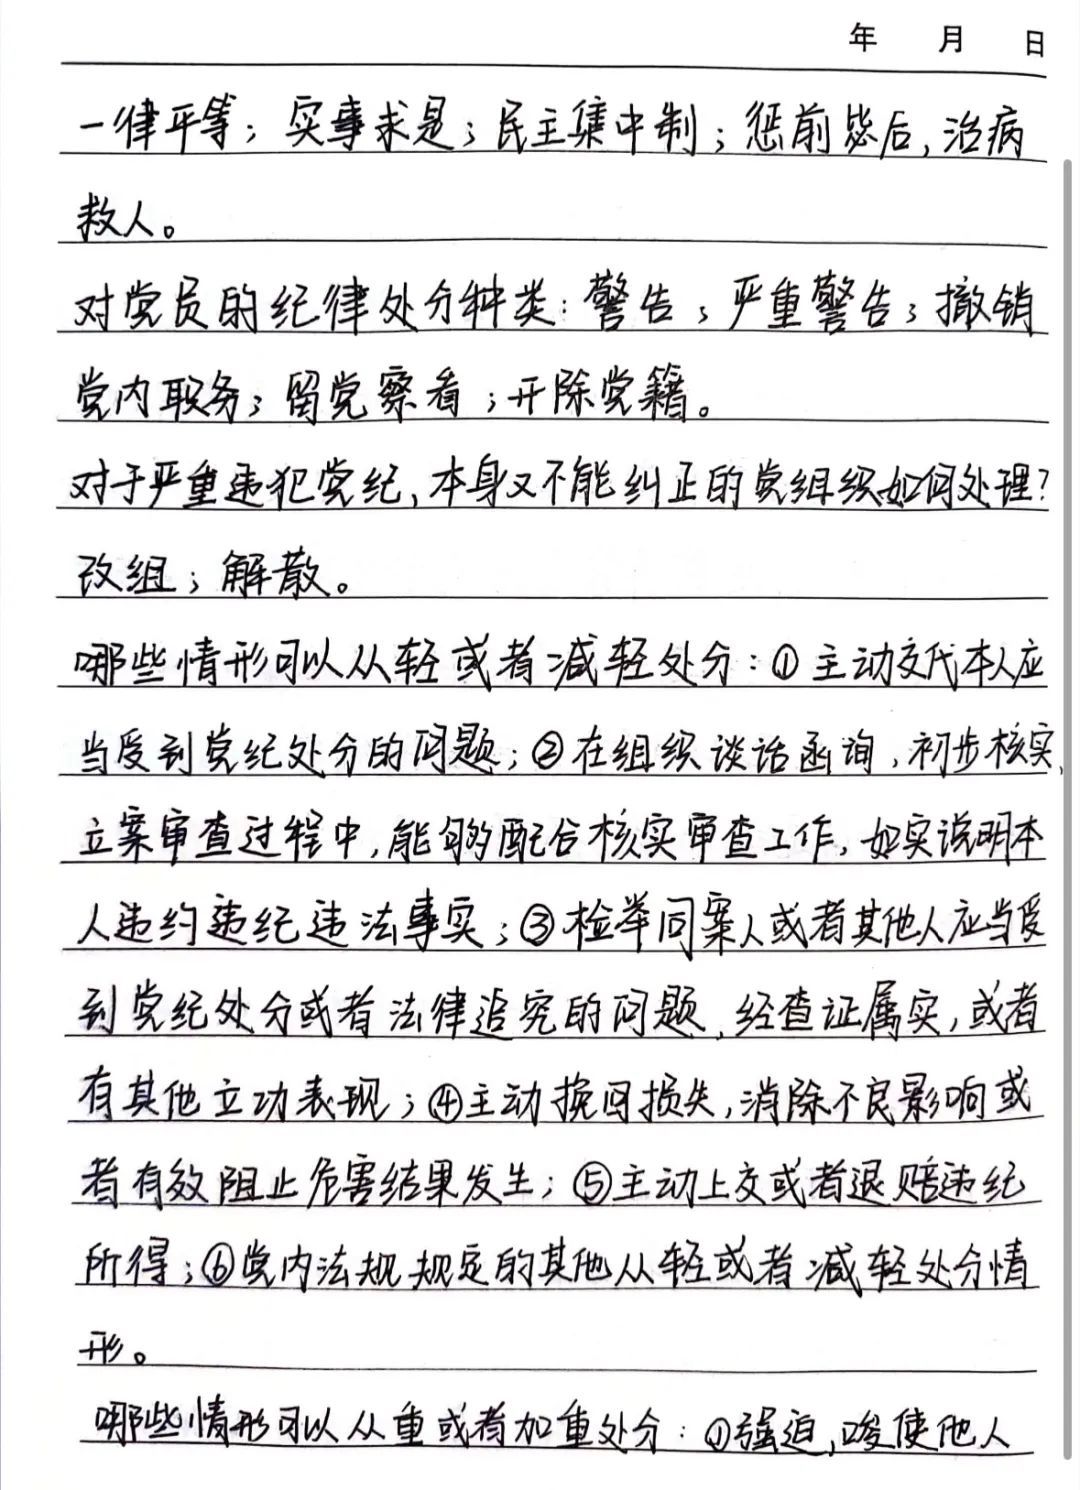 年 月 日
一律平等；实事求是；民主集中制；惩前毖后，治病
救人。
对党员的纪律处分种类：警告；严重警告；撤销
党内职务；留党察看；开除党籍。
对于严重违犯党纪，本身又不能纠正的党组织如何处理？
改组；解散。
哪些情形可以从轻或者减轻处分：①主动交代本人应
当受到党纪处分的问题；②在组织谈话函询，初步核实，
立案审查过程中，能够配合核实审查工作，如实说明本
人违约违纪违法事实；③检举同案人或者其他人应当受
到党纪处分或者法律追究的问题，经查证属实，或者
有其他立功表现；④主动挽回损失，消除不良影响或
者有效阻止危害结果发生；⑤主动上交或者退赔违纪
所得；⑥党内法规规定的其他从轻或者减轻处分情
形。
哪些情形可以从重或者加重处分：①强迫，唆使他人